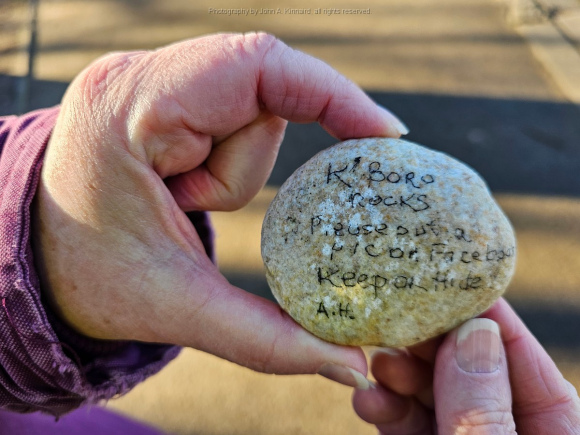 Photography by John A. Kinnard all rights reserved.
K'BORO
ROCKS
Please put a
PIC on Facebook
Keep or Hide
A.H.